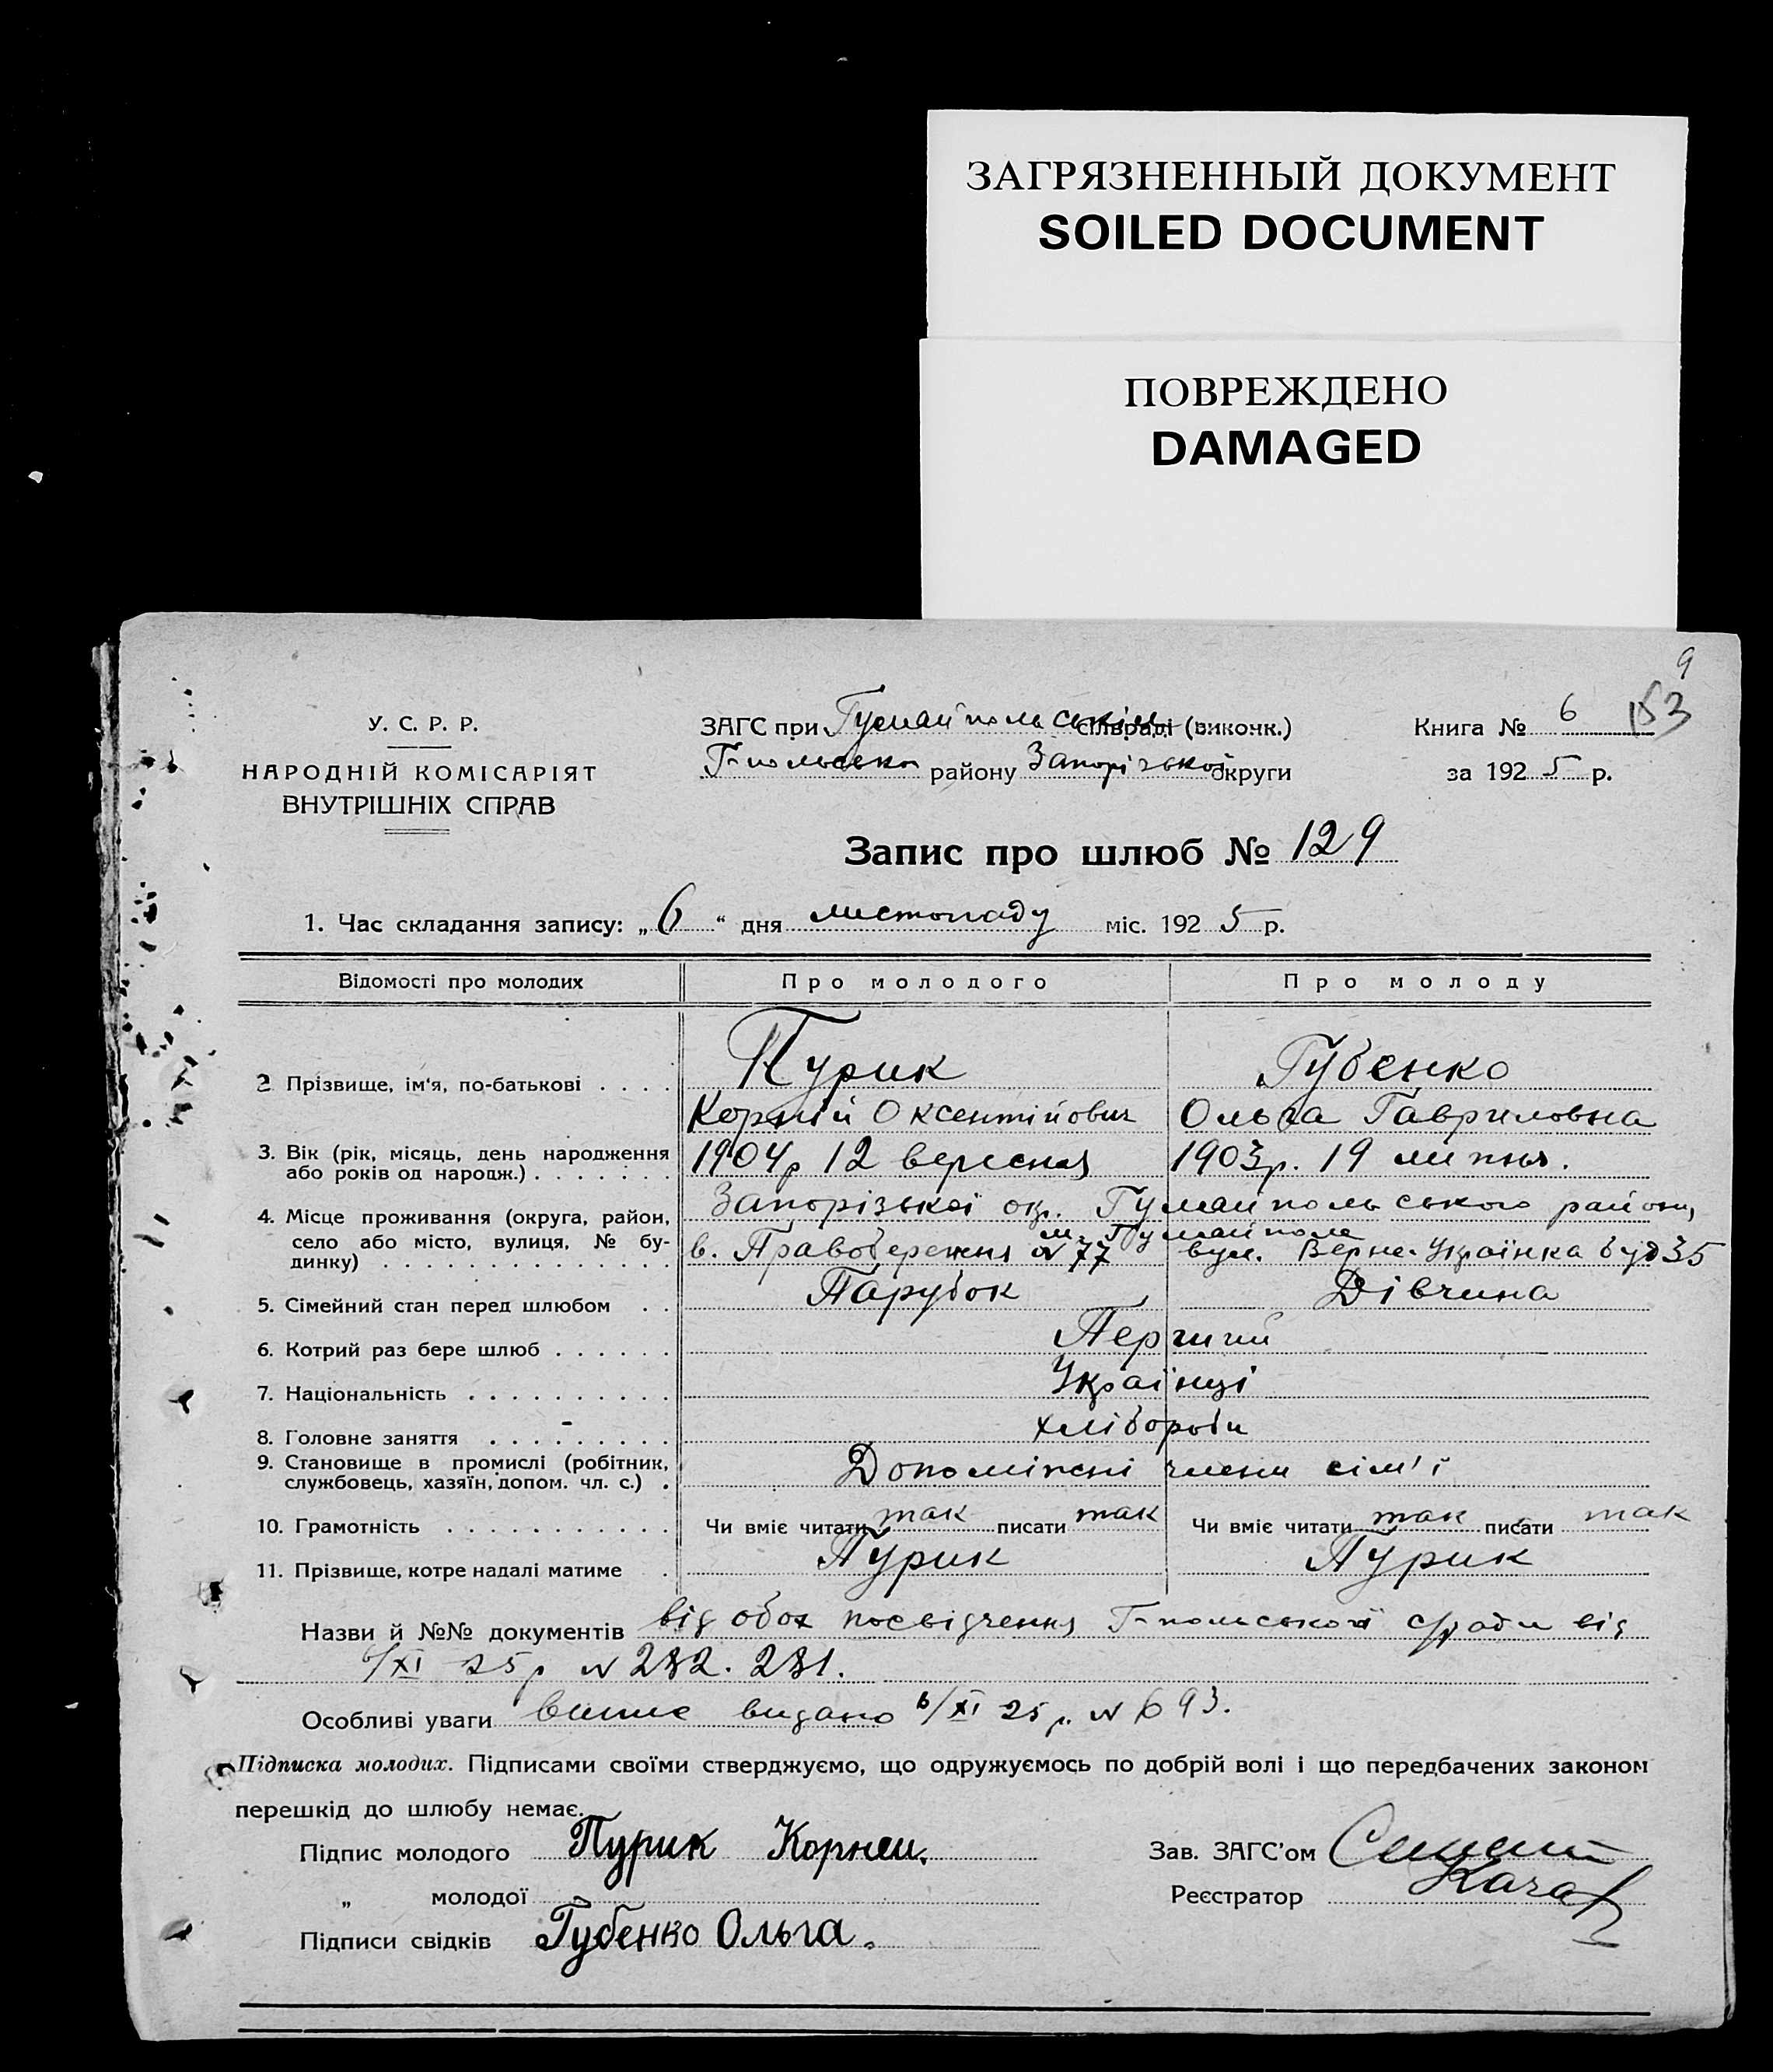 ЗАГРЯЗНЕННЫЙ ДОКУМЕНТ
SOILED DOCUMENT
ПОВРЕЖДЕНО
DAMAGED
9
153
У. С. Р. Р.
НАРОДНІЙ КОМІСАРІЯТ
ВНУТРІШНІХ СПРАВ
ЗАГС при Гуляйпольськім сільраді (виконк.)
Г-польського району Запорізької округи
Книга № 6
за 1925 р.
Запис про шлюб № 129
1. Час складання запису: „6“ дня листопаду міс. 1925 р.
Відомості про молодих Про молодого Про молоду
2 Прізвище, ім'я, по-батькові . . . . Пурик Губенко
Корній Оксентійович Ольга Гавриловна
3. Вік (рік, місяць, день народження
або років од народж.) . . . . . . . 1904р 12 вересня 1903р. 19 липня.
4. Місце проживання (округа, район,
село або місто, вулиця, № бу-
динку) . . . . . . . . . . . . . .
Запорізької окр. Гуляйпольського району,
м. Гуляйполе
в. Правобережня № 77 вул. Верне-Українка буд 35
5. Сімейний стан перед шлюбом . . Парубок Дівчина
6. Котрий раз бере шлюб . . . . . . Перший
7. Національність . . . . . . . . . . Українці
8. Головне заняття . . . . . . . . . хлібороби
9. Становище в промислі (робітник,
службовець, хазяїн, допом. чл. с.) . Допоміжні члени сім'ї
10. Грамотність . . . . . . . . . . . Чи вміє читати так писати так Чи вміє читати так писати так
11. Прізвище, котре надалі матиме . Пурик Пурик
Назви й №№ документів від обох посвідчення Г-польської с/ради від
6/XI 25р № 232. 231.
Особливі уваги видано 6/XI 25 р. № 693.
Підписка молодих. Підписами своїми стверджуємо, що одружуємось по добрій волі і що передбачених законом
перешкід до шлюбу немає.
Підпис молодого Пурик Корней.
„ молодої
Підписи свідків Губенко Ольга.
Зав. ЗАГС'ом
Реєстратор